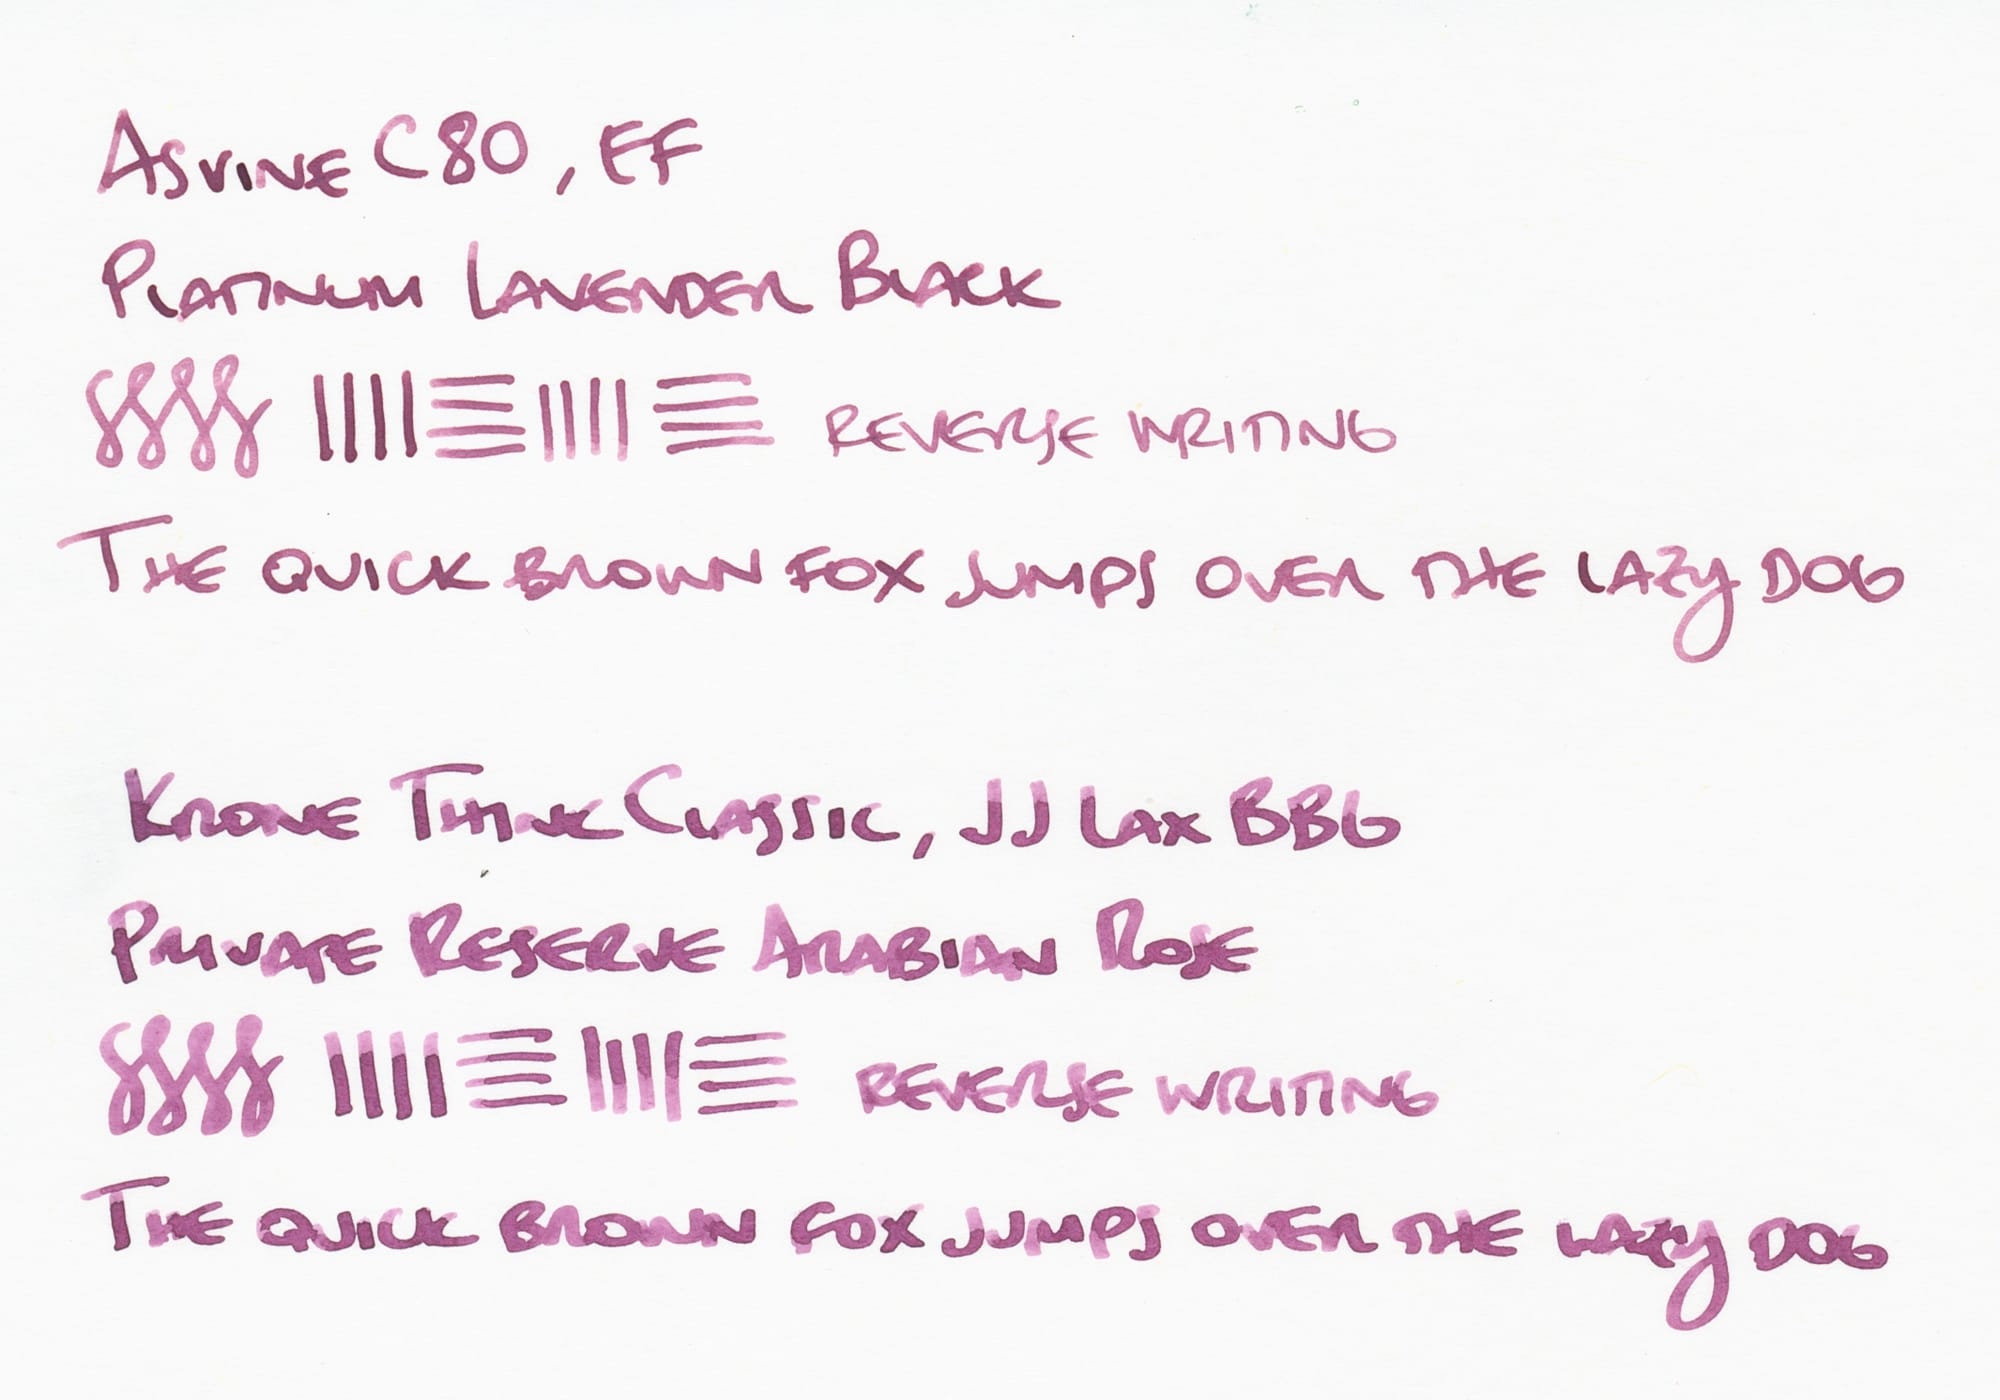 ASVINE C80, EF
PLATINUM LAVENDER BLACK
REVERSE WRITING
THE QUICK BROWN FOX JUMPS OVER THE LAZY DOG
KRONE THINK CLASSIC, JJ LAX BBG
PRIVATE RESERVE ARABIAN ROSE
REVERSE WRITING
THE QUICK BROWN FOX JUMPS OVER THE LAZY DOG